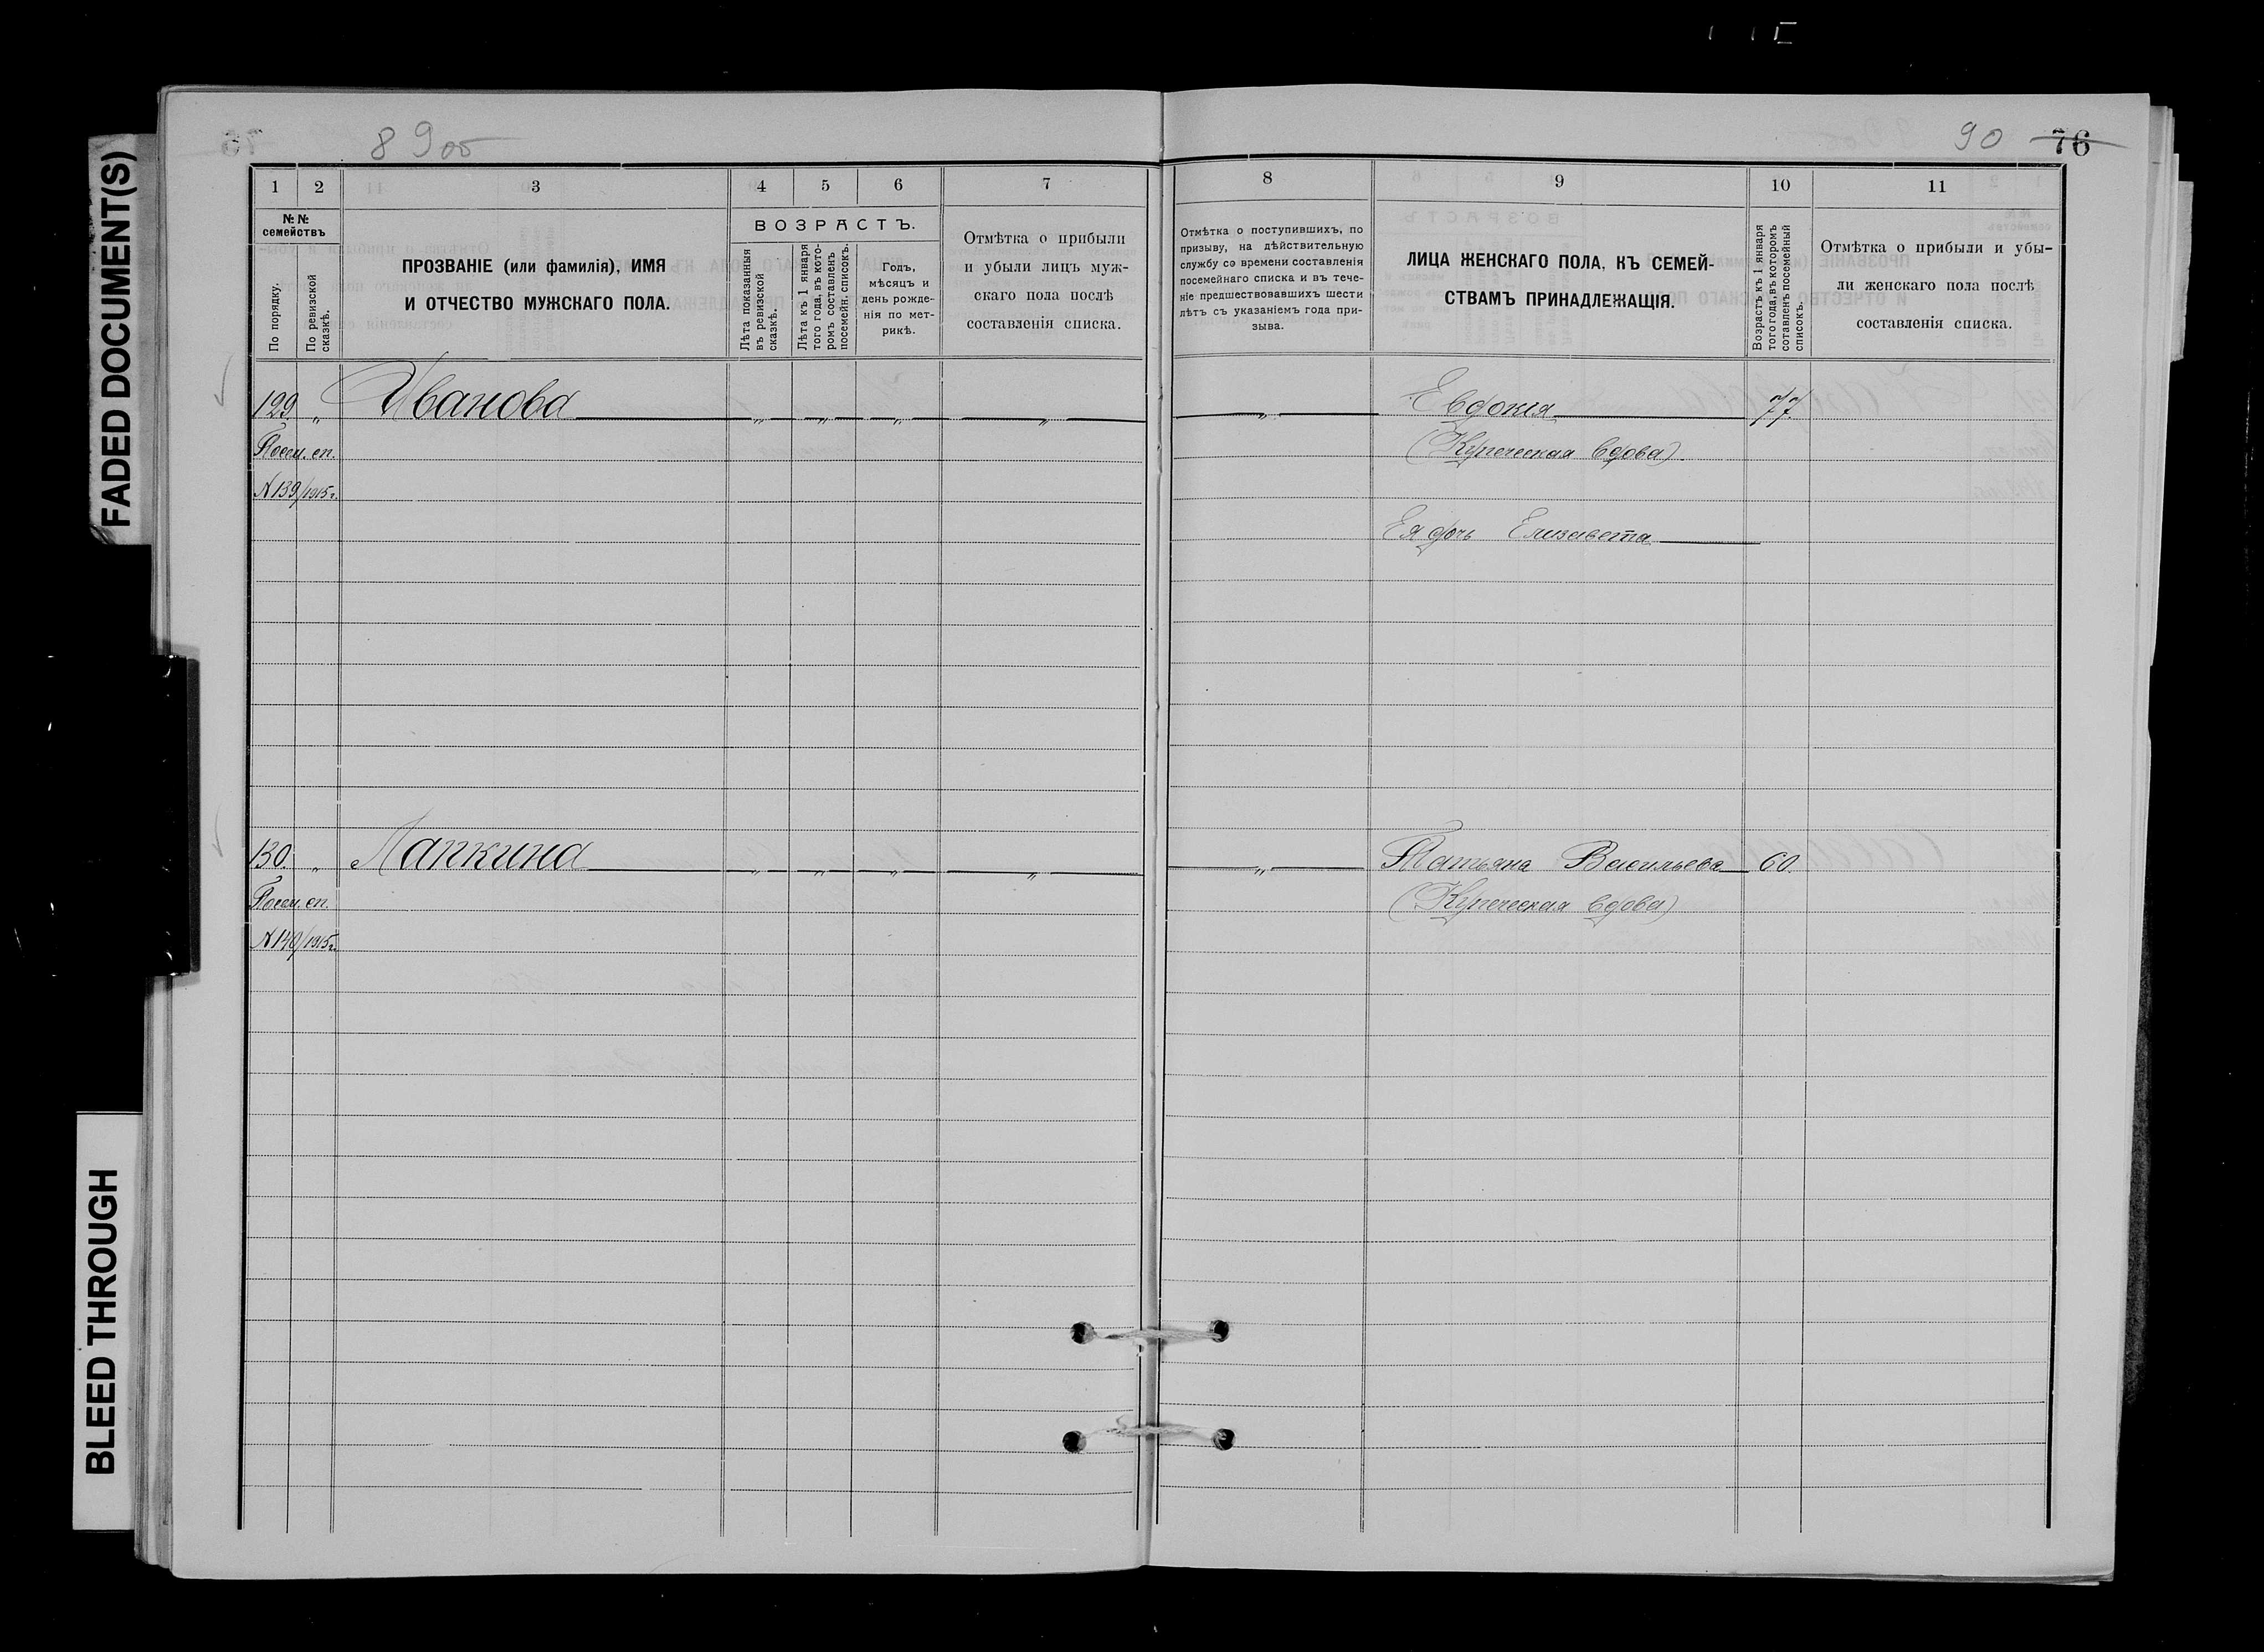 FADED DOCUMENT(S)
BLEED THROUGH
8 9 об
90 76
1 2 3 4 5 6 7
№№ семействъ
По порядку.
По ревизской сказкѣ.
ПРОЗВАНІЕ (или фамилія), ИМЯ
И ОТЧЕСТВО МУЖСКАГО ПОЛА.
ВОЗРАСТЪ.
Лѣта показанныя въ ревизской сказкѣ.
Лѣта къ 1 января того года, въ которомъ составленъ посемейн. списокъ.
Годъ,
мѣсяцъ и
день рожде-
нія по мет-
рикѣ.
Отмѣтка о прибыли
и убыли лицъ муж-
скаго пола послѣ
составленія списка.
8 9 10 11
Отмѣтка о поступившихъ, по
призыву, на дѣйствительную
службу со времени составленія
посемейнаго списка и въ тече-
ніе предшествовавшихъ шести
лѣтъ съ указаніемъ года при-
зыва.
ЛИЦА ЖЕНСКАГО ПОЛА, КЪ СЕМЕЙ-
СТВАМЪ ПРИНАДЛЕЖАЩІЯ.
Возрастъ къ 1 января того года, въ которомъ составленъ посемейный списокъ.
Отмѣтка о прибыли и убы-
ли женскаго пола послѣ
составленія списка.
129 „ Иванова „ „ „ „ „ Евдокія 77.
Посем. сп. (Купеческая вдова)
№139/1915г.
Ея дочь Елизавета
130. „ Лапкина „ „ „ „ „ Татьяна Васильева 60.
Посем. сп. (Купеческая вдова)
№140/1915г.